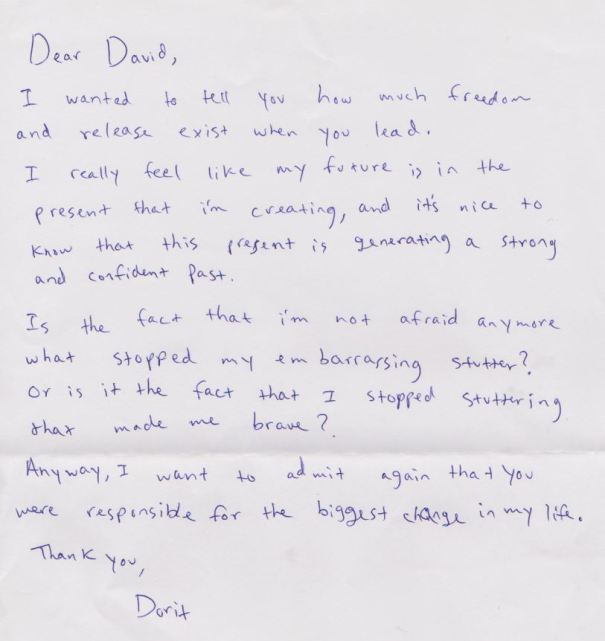 Dear David,
I wanted to tell you how much freedom
and release exist when you lead.
I really feel like my future is in the
present that i'm creating, and it's nice to
know that this present is generating a strong
and confident past.
Is the fact that i'm not afraid anymore
what stopped my embarrassing stutter?
Or is it the fact that I stopped stuttering
that made me brave?
Anyway, I want to admit again that you
were responsible for the biggest change in my life.
Thank you,
Dorit